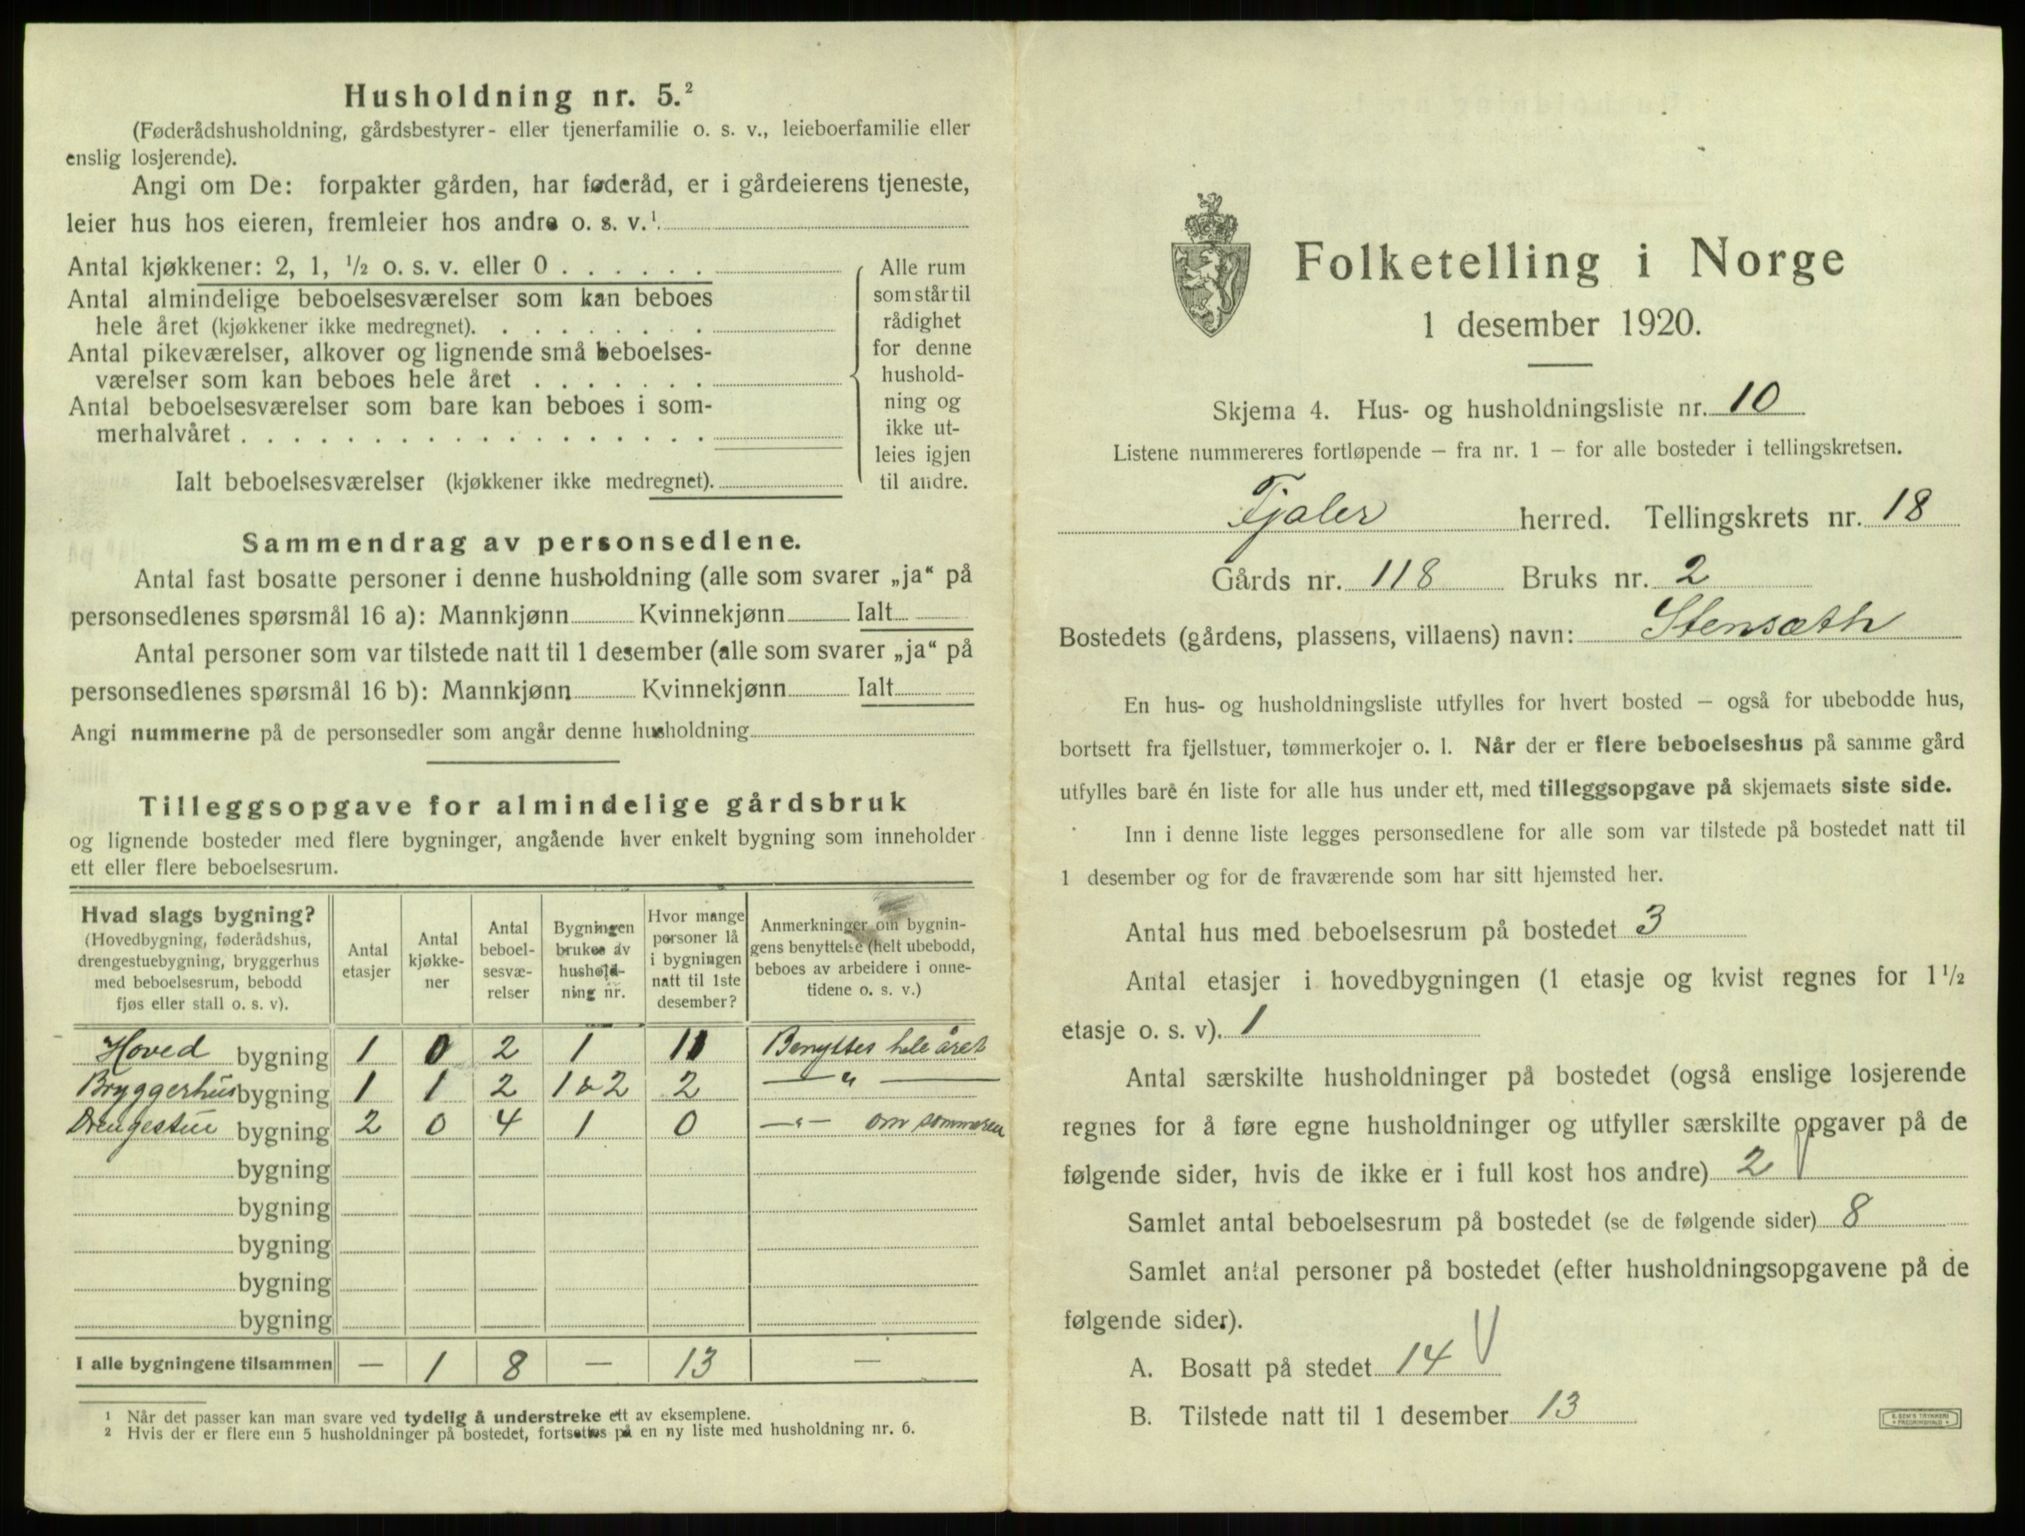 Husholdning nr. 5.²
(Føderådshusholdning, gårdsbestyrer- eller tjenerfamilie o. s. v., leieboerfamilie eller
enslig losjerende).
Angi om De: forpakter gården, har føderåd, er i gårdeierens tjeneste,
leier hus hos eieren, fremleier hos andre o. s. v.¹
Antal kjøkkener: 2, 1, ½ o. s. v. eller 0 . . . . . .
Antal almindelige beboelsesværelser som kan beboes
hele året (kjøkkener ikke medregnet). . . . . . . . .
Antal pikeværelser, alkover og lignende små beboelses-
værelser som kan beboes hele året . . . . . . .
Antal beboelsesværelser som bare kan beboes i som-
merhalvåret . . . . . . . . . . . . . . . . . .
Ialt beboelsesværelser (kjøkkener ikke medregnet).
Alle rum
som står til
rådighet
for denne
hushold-
ning og
ikke ut-
leies igjen
til andre.
Sammendrag av personsedlene.
Antal fast bosatte personer i denne husholdning (alle som svarer „ja“ på
personsedlenes spørsmål 16 a): Mannkjønn Kvinnekjønn Ialt
Antal personer som var tilstede natt til 1 desember (alle som svarer „ja“ på
personsedlenes spørsmål 16 b): Mannkjønn Kvinnekjønn Ialt
Angi nummerne på de personsedler som angår denne husholdning
Tilleggsopgave for almindelige gårdsbruk
og lignende bosteder med flere bygninger, angående hver enkelt bygning som inneholder
ett eller flere beboelsesrum.
Hvad slags bygning?
(Hovedbygning, føderådshus,
drengestuebygning, bryggerhus
med beboelsesrum, bebodd
fjøs eller stall o. s. v).
Antal
etasjer
Antal
kjøkke-
ner
Antal
beboel-
sesvæ-
relser
Bygningen
brukes av
hushold-
ning nr.
Hvor mange
personer lå
i bygningen
natt til 1ste
desember?
Anmerkninger om bygnin-
gens benyttelse (helt ubebodd,
beboes av arbeidere i onne-
tidene o. s. v.)
Hoved bygning 1 0 2 1 11 Benyttes hele året
Bryggerhus bygning 1 1 2 1 & 2 2 — „ —
Drengestue bygning 2 0 4 1 0 — „ — om sommeren
bygning
bygning
bygning
bygning
bygning
I alle bygningene tilsammen — 1 8 — 13 —
¹ Når det passer kan man svare ved tydelig å understreke ett av eksemplene.
² Hvis der er flere enn 5 husholdninger på bostedet, fortsettes på en ny liste med husholdning nr. 6.
Folketelling i Norge
1 desember 1920.
Skjema 4. Hus- og husholdningsliste nr. 10
Listene nummereres fortløpende – fra nr. 1 – for alle bosteder i tellingskretsen.
Fjaler herred. Tellingskrets nr. 18
Gårds nr. 118 Bruks nr. 2
Bostedets (gårdens, plassens, villaens) navn: Stensæth
En hus- og husholdningsliste utfylles for hvert bosted – også for ubebodde hus,
bortsett fra fjellstuer, tømmerkojer o. l. Når der er flere beboelseshus på samme gård
utfylles bare én liste for alle hus under ett, med tilleggsopgave på skjemaets siste side.
Inn i denne liste legges personsedlene for alle som var tilstede på bostedet natt til
1 desember og for de fraværende som har sitt hjemsted her.
Antal hus med beboelsesrum på bostedet 3
Antal etasjer i hovedbygningen (1 etasje og kvist regnes for 1½
etasje o. s. v). 1
Antal særskilte husholdninger på bostedet (også enslige losjerende
regnes for å føre egne husholdninger og utfyller særskilte opgaver på de
følgende sider, hvis de ikke er i full kost hos andre) 2
Samlet antal beboelsesrum på bostedet (se de følgende sider) 8
Samlet antal personer på bostedet (efter husholdningsopgavene på de
følgende sider).
A. Bosatt på stedet 14
B. Tilstede natt til 1 desember 13
E. SEM'S TRYKKERI
FREDRIKSHALD